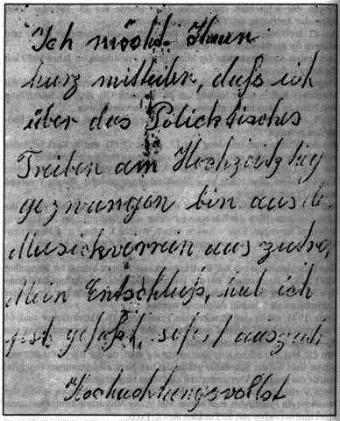 Ich möcht Ihnen
kurz mitteilen, daß ich
über das Policktisches
Treiben am Hochzeitstag
gezwungen bin aus de
Musickverein aus zutre,
Mein Entschluß, hat ich
gefaßt, sofort
Hochachtungsvollst